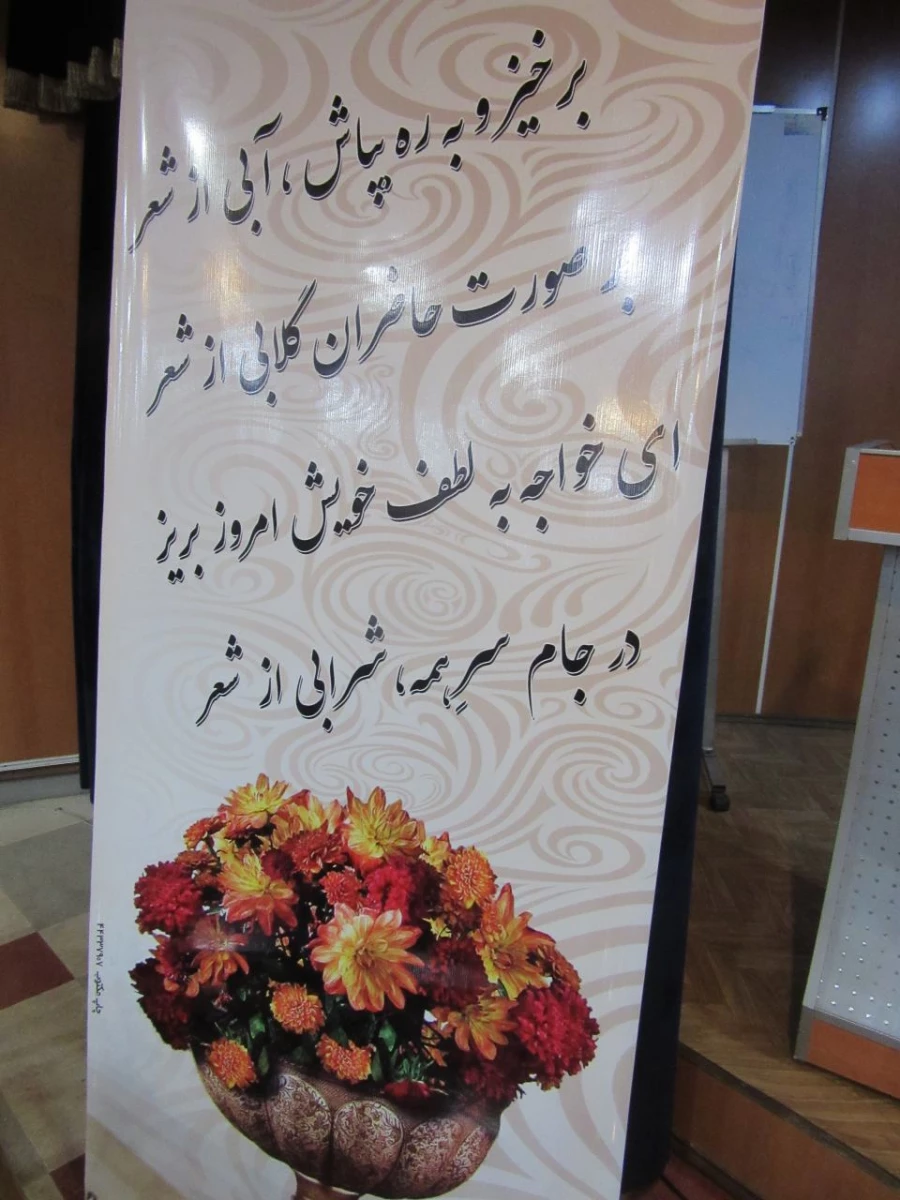 بر خیز و به ره بپاش ، آبی از شعر
بر صورت حاضران گلابی از شعر
ای خواجه به لطف خویش امروز بریز
در جام سرِ همه، شرابی از شعر